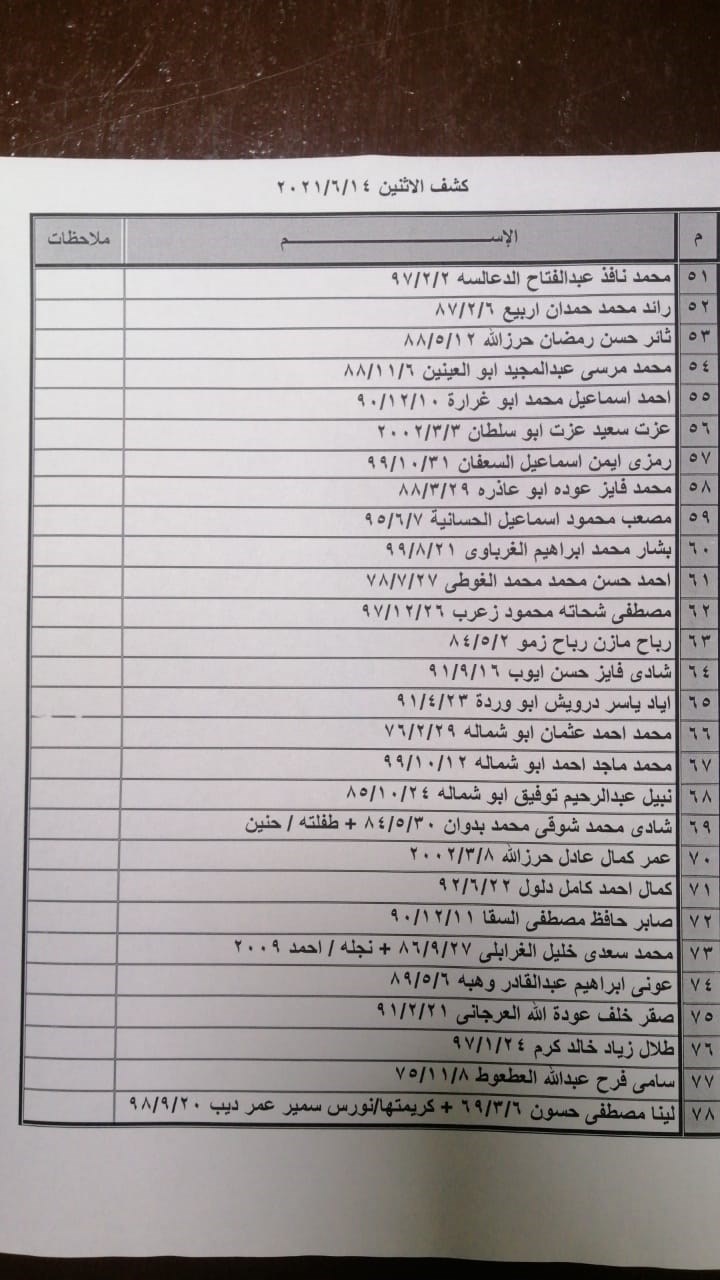 كشف الاثنين ٢٠٢١/٦/١٤
م الإســـــــــم ملاحظات
٥١ محمد نافذ عبدالفتاح الدعالسه ٩٧/٢/٢
٥٢ رائد محمد حمدان اربيع ٨٧/٢/٦
٥٣ ثائر حسن رمضان حرزالله ٨٨/٥/١٢
٥٤ محمد مرسى عبدالمجيد ابو العينين ٨٨/١١/٦
٥٥ احمد اسماعيل محمد ابو غرارة ٩٠/١٢/١٠
٥٦ عزت سعيد عزت ابو سلطان ٢٠٠٢/٣/٣
٥٧ رمزى ايمن اسماعيل السعفان ٩٩/١٠/٣١
٥٨ محمد فايز عوده ابو عاذره ٨٨/٣/٢٩
٥٩ مصعب محمود اسماعيل الحسانية ٩٥/٦/٧
٦٠ بشار محمد ابراهيم الغرباوى ٩٩/٨/٢١
٦١ احمد حسن محمد محمد الغوطى ٧٨/٧/٢٧
٦٢ مصطفى شحاته محمود زعرب ٩٧/١٢/٢٦
٦٣ رباح مازن رباح زمو ٨٤/٥/٢
٦٤ شادى فايز حسن ايوب ٩١/٩/١٦
٦٥ اياد ياسر درويش ابو وردة ٩١/٤/٢٣
٦٦ محمد احمد عثمان ابو شماله ٧٦/٢/٢٩
٦٧ محمد ماجد احمد ابو شماله ٩٩/١٠/١٢
٦٨ نبيل عبدالرحيم توفيق ابو شماله ٨٥/١٠/٢٤
٦٩ شادى محمد شوقى محمد بدوان ٨٤/٥/٣٠ + طفلته / حنين
٧٠ عمر كمال عادل حرزالله ٢٠٠٢/٣/٨
٧١ كمال احمد كامل دلول ٩٢/٦/٢٢
٧٢ صابر حافظ مصطفى السقا ٩٠/١٢/١١
٧٣ محمد سعدى خليل الغرابلى ٨٦/٩/٢٧ + نجله / احمد ٢٠٠٩
٧٤ عونى ابراهيم عبدالقادر وهبه ٨٩/٥/٦
٧٥ صقر خلف عودة الله العرجانى ٩١/٢/٢١
٧٦ طلال زياد خالد كرم ٩٧/١/٢٤
٧٧ سامى فرح عبدالله العطعوط ٧٥/١١/٨
٧٨ لينا مصطفى حسون ٦٩/٣/٦ + كريمتها/نورس سمير عمر ديب ٩٨/٩/٢٠